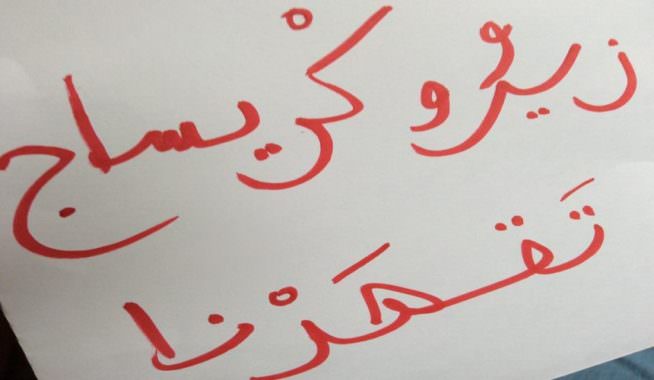 زيرُو كْريساج
تَقهَرْنا